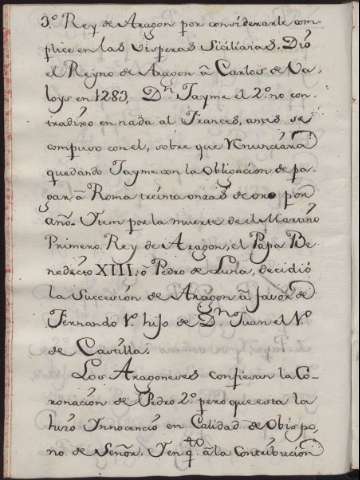 3.º Rey de Aragon por considerarle com-
plice en las Visperas Sicilianas. Dió
el Reyno de Aragon â Carlos de Va-
loys en 1283. Dn. Jayme el 2.º no con-
tradixo en nada al Frances, antes se
compuso con el, sobre que renunciaria
quedando Jayme con la Obligacion de pa-
gar â Roma treinta onzas de oro por
año. Item por la muerte de el Martino
Primero, Rey de Aragon, el Papa Be-
nedicto XIII, ô Pedro de Luna, decidió
la Succesión de Aragon â favor de
Fernando 1.º hijo de Dn. Juan el
de Castilla.
Los Aragoneses confiesan la Co-
ronacion de Pedro 2.º pero que esta la
hizo Innocencio en Calidad de Obispo,
no de Señor. Y en qto. â la Contribución